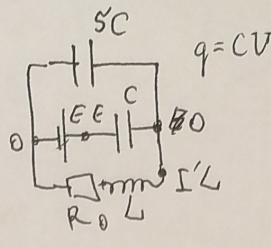 5C
q=CU
E E C
0 0
I'L
R 0 L